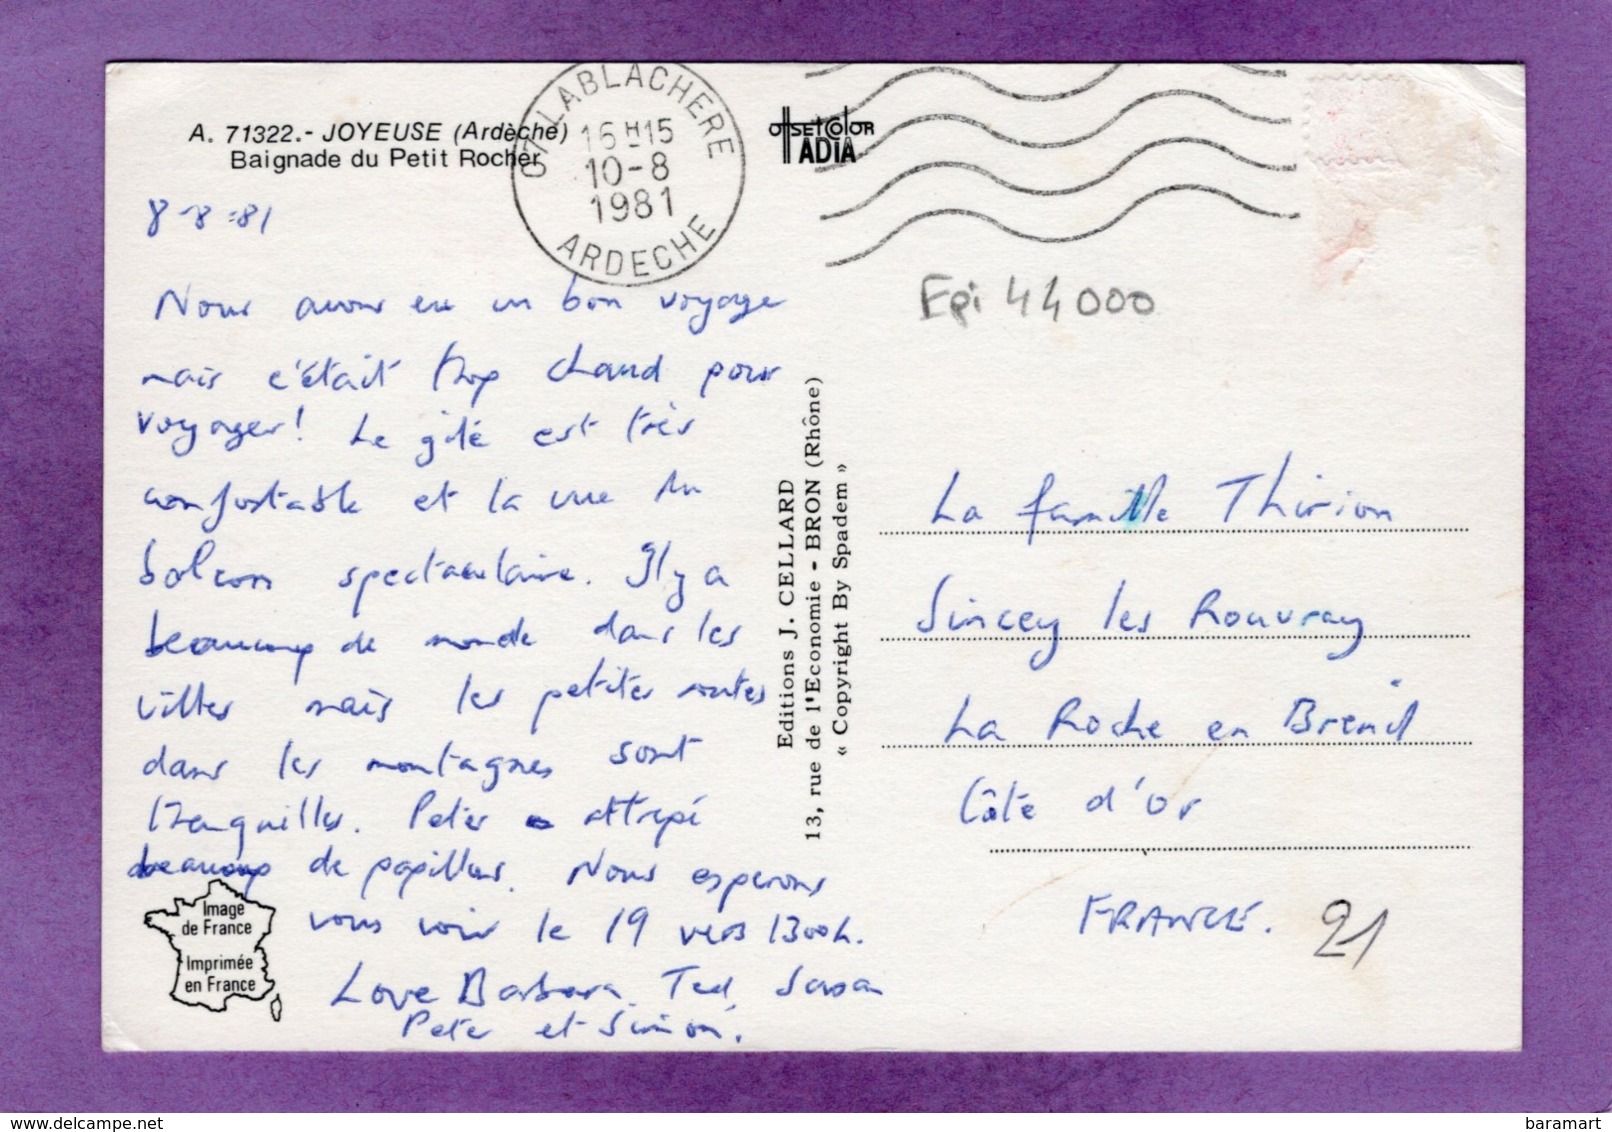 A. 71322.- JOYEUSE (Ardèche)
Baignade du Petit Rocher
07 LABLACHERE
16 H 15
10-8
1981
ARDECHE
OFFSETCOLOR
ADIA
8-8-81
Nous avons eu un bon voyage
mais c'était trop chaud pour
voyager! Le gîte est très
confortable et la vue du
balcon spectaculaire. Il y a
beaucoup de monde dans les
villes mais les petites routes
dans les montagnes sont
tranquilles. Peter attrapé
beaucoup de papillons. Nous esperons
vous voir le 19 vers 1300h.
Love Barbara, Ted, Susan
Peter et Simon.
Image
de France
Imprimée
en France
Editions J. CELLARD
13, rue de l'Economie - BRON (Rhône)
« Copyright By Spadem »
Epi 44000
La famille Thirion
Sincey les Rouvray
La Roche en Brenil
Côte d'Or
FRANCE.
21
baramart